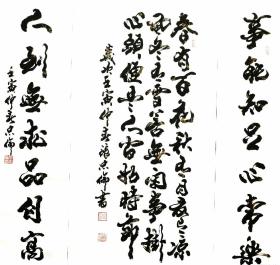 事能知足心常樂
春有百花秋有月夏有涼
風冬有雪若無閑事掛
心頭便是人間好時節
歲次壬寅仲春
書
人到無求品自高
壬寅仲春